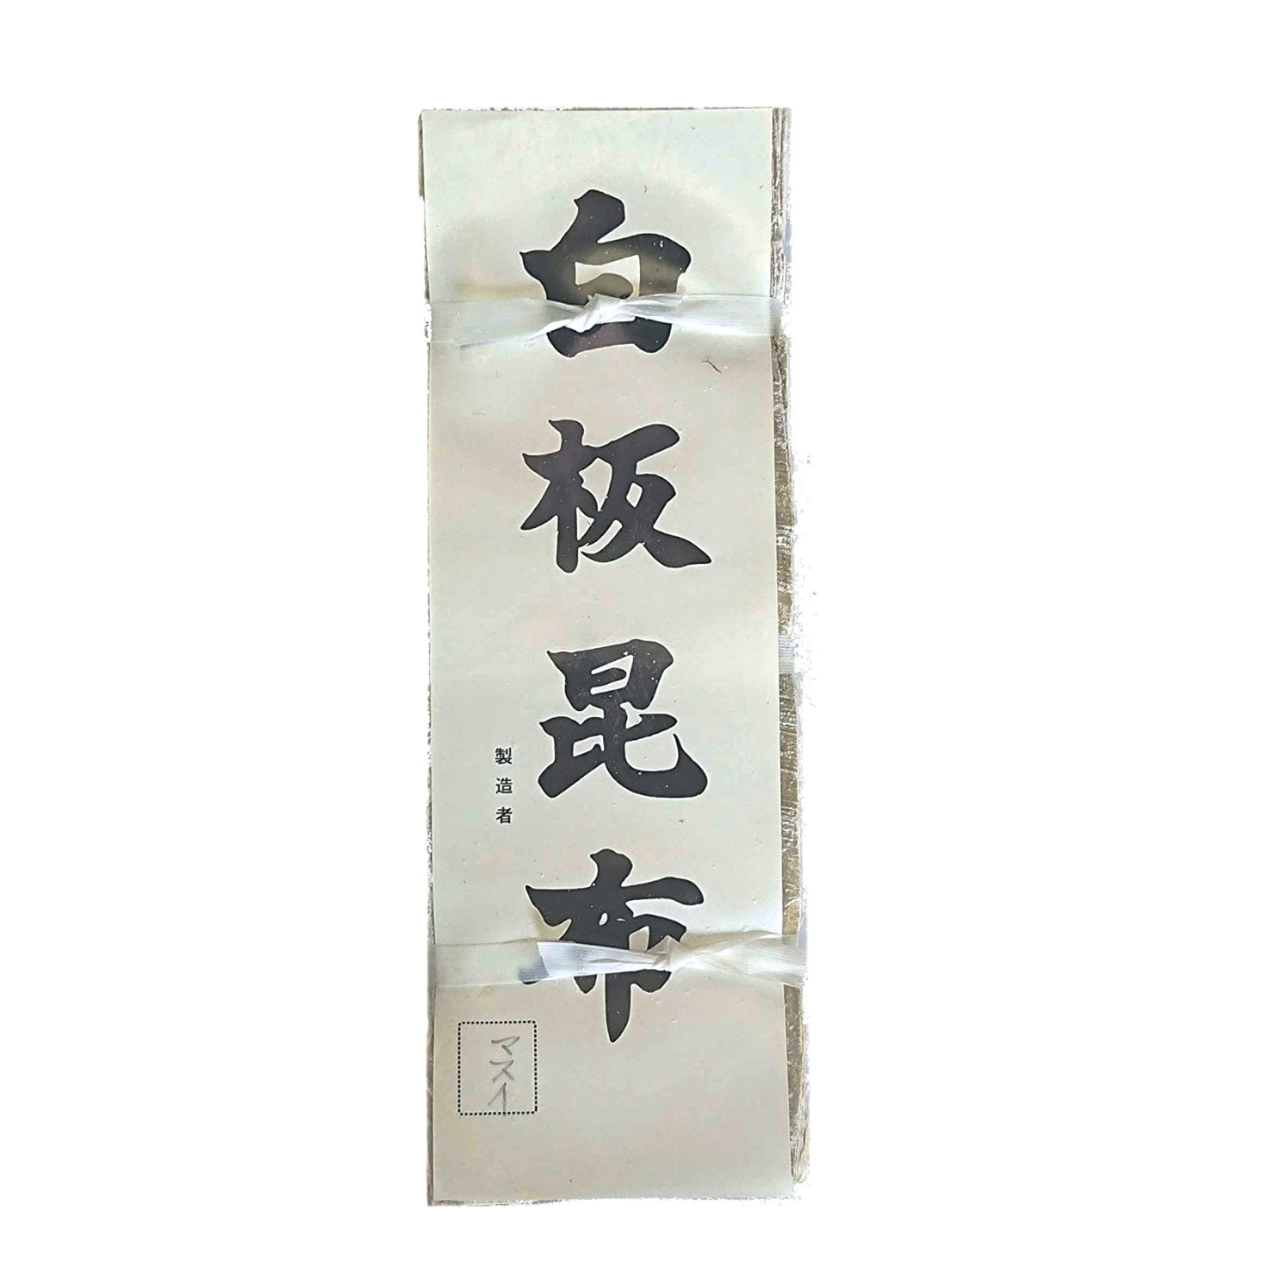 白板昆布
製造者
マスイ